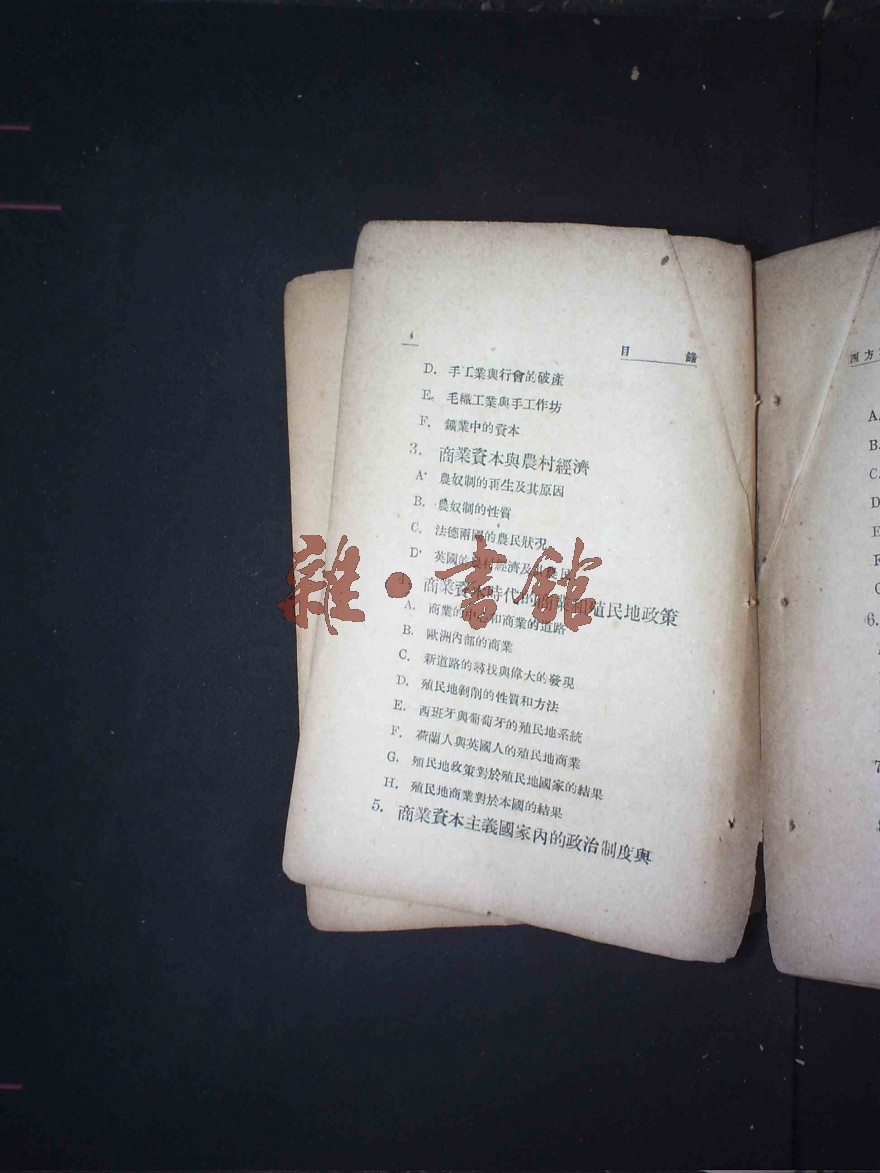 4
目 錄
D. 手工業與行會的破產
E. 毛織工業與手工作坊
F. 鑛業中的資本
3. 商業資本與農村經濟
A· 農奴制的再生及其原因
B. 農奴制的性質
C. 法德兩國的農民狀况
D· 英國的農村經濟及其農民
4. 商業資本時代的商業和殖民地政策
A. 商業的中心和商業的道路
B. 歐洲內部的商業
C. 新道路的尋找與偉大的發現
D. 殖民地剝削的性質和方法
E. 西班牙與葡萄牙的殖民地系統
F. 荷蘭人與英國人的殖民地商業
G. 殖民地政策對於殖民地國家的結果
H. 殖民地商業對於本國的結果
5. 商業資本主義國家內的政治制度與
雜·書館
西方
A.
B.
C.
D
E
F
6.
7